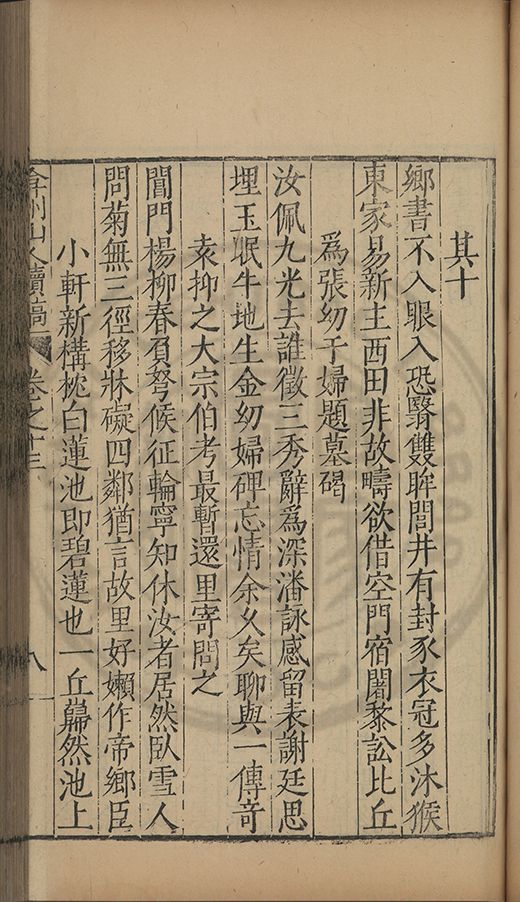 其十
鄉書不入眼入恐翳雙眸閭井有封豕衣冠多沐猴
東家易新主西田非故疇欲借空門宿闍黎訟比丘
為張幼于婦題墓碣
汝佩九光去誰徵三秀辭為深潘詠感留表謝廷思
埋玉眠牛地生金幼婦碑忘情余久矣聊與一傳奇
袁抑之大宗伯考最暫還里寄問之
閶門楊柳春負弩候征輪寧知休汝者居然臥雪人
問菊無三徑移牀礙四鄰猶言故里好嬾作帝鄉臣
小軒新構枕白蓮池即碧蓮也一丘巋然池上
弇州山人續稿 卷之十三 八